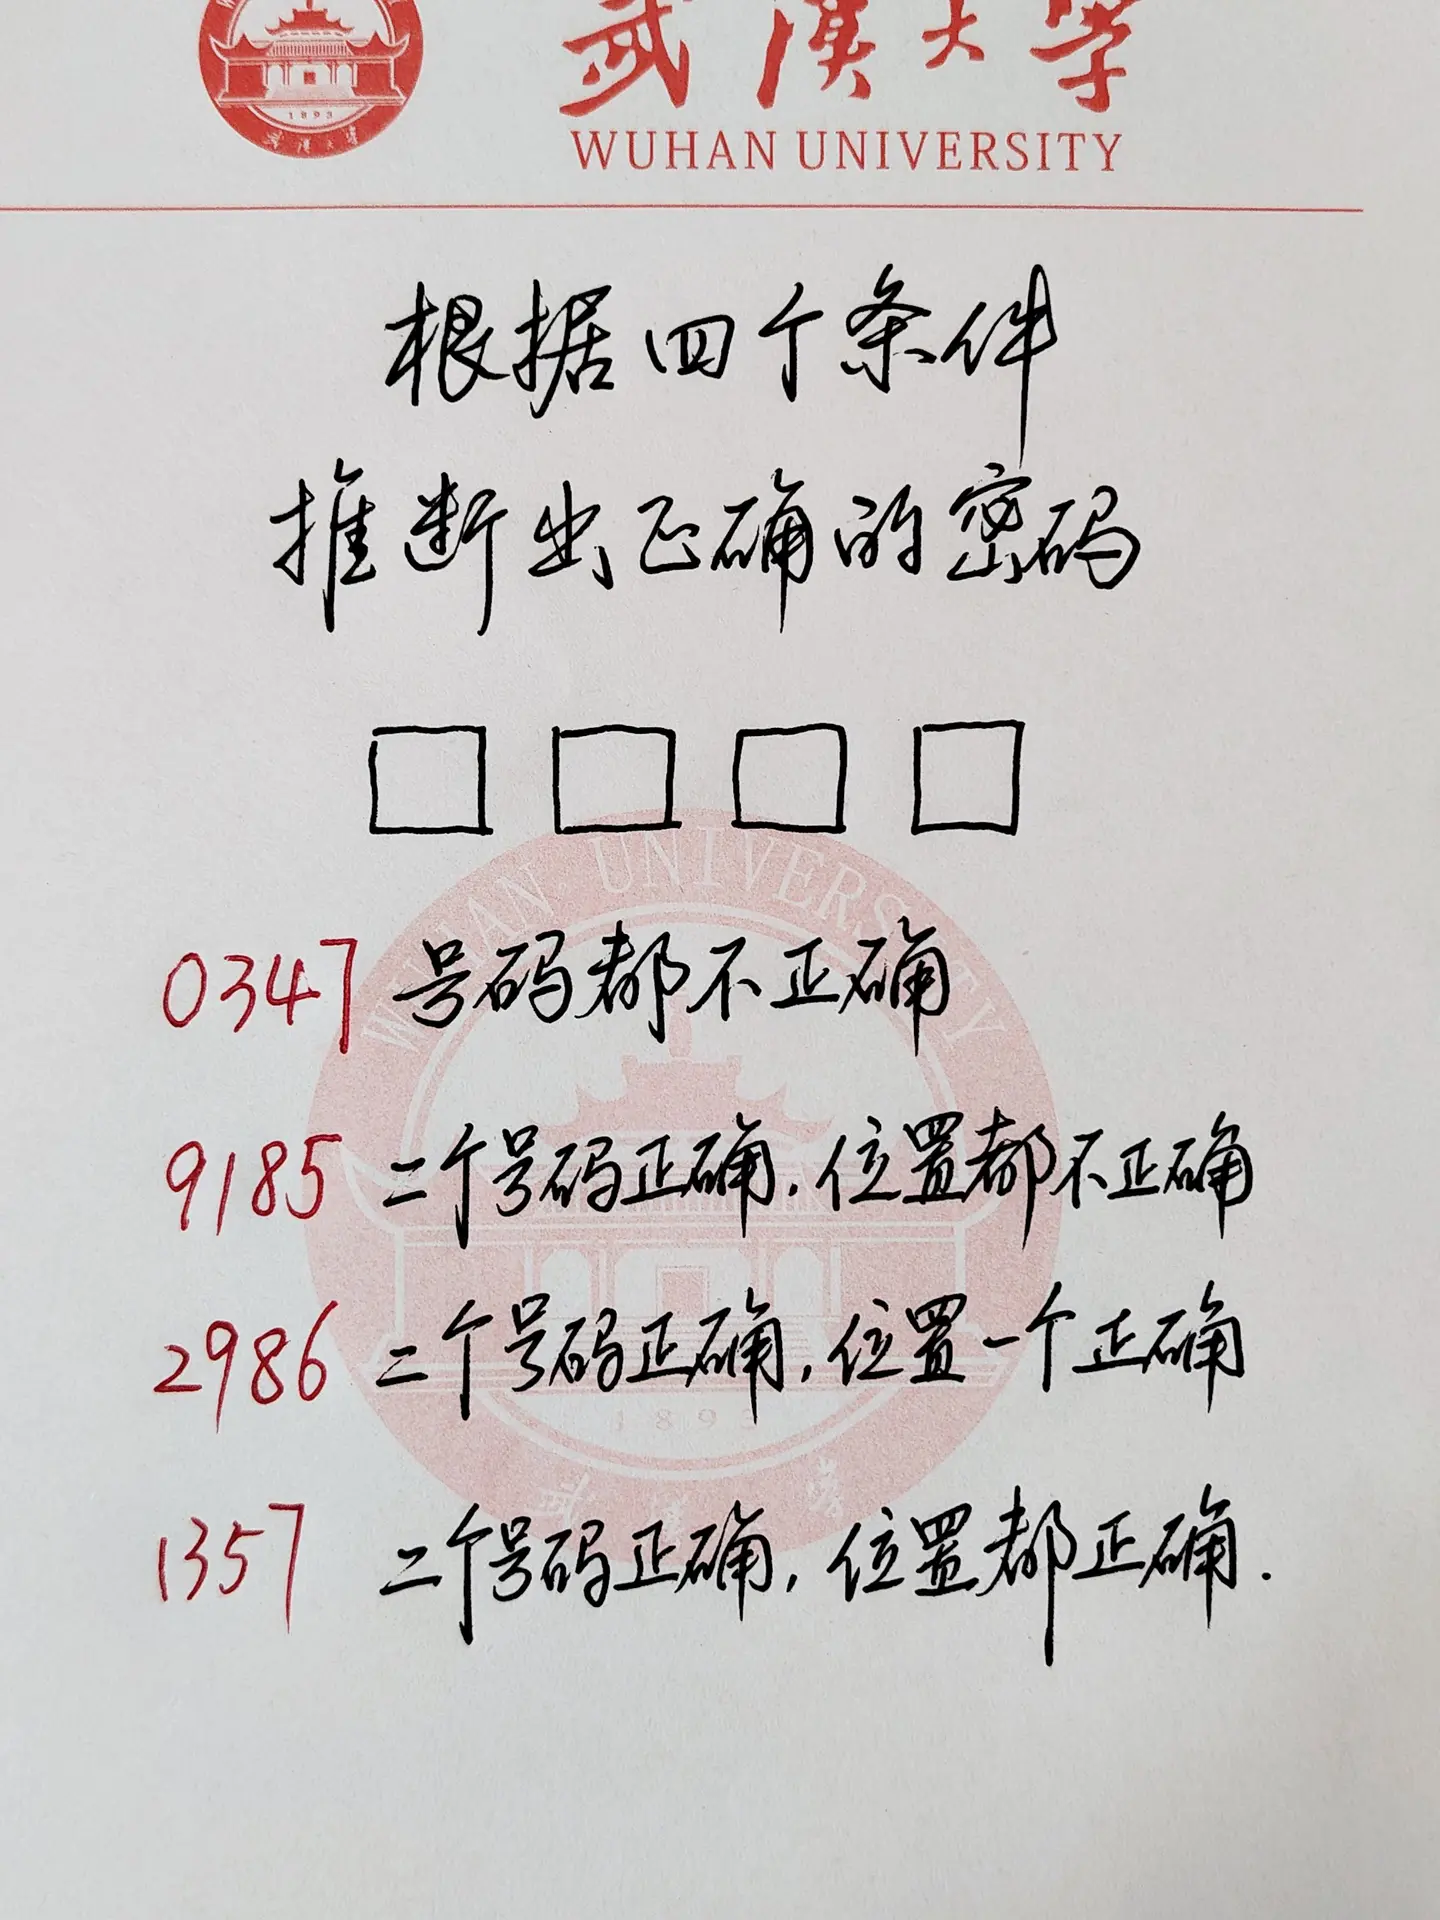 武汉大学
1893
WUHAN UNIVERSITY
根据四个条件
推断出正确的密码
WUHAN UNIVERSITY
0347 号码都不正确
9185 二个号码正确，位置都不正确
2986 二个号码正确，位置一个正确
1893
1357 二个号码正确，位置都正确.